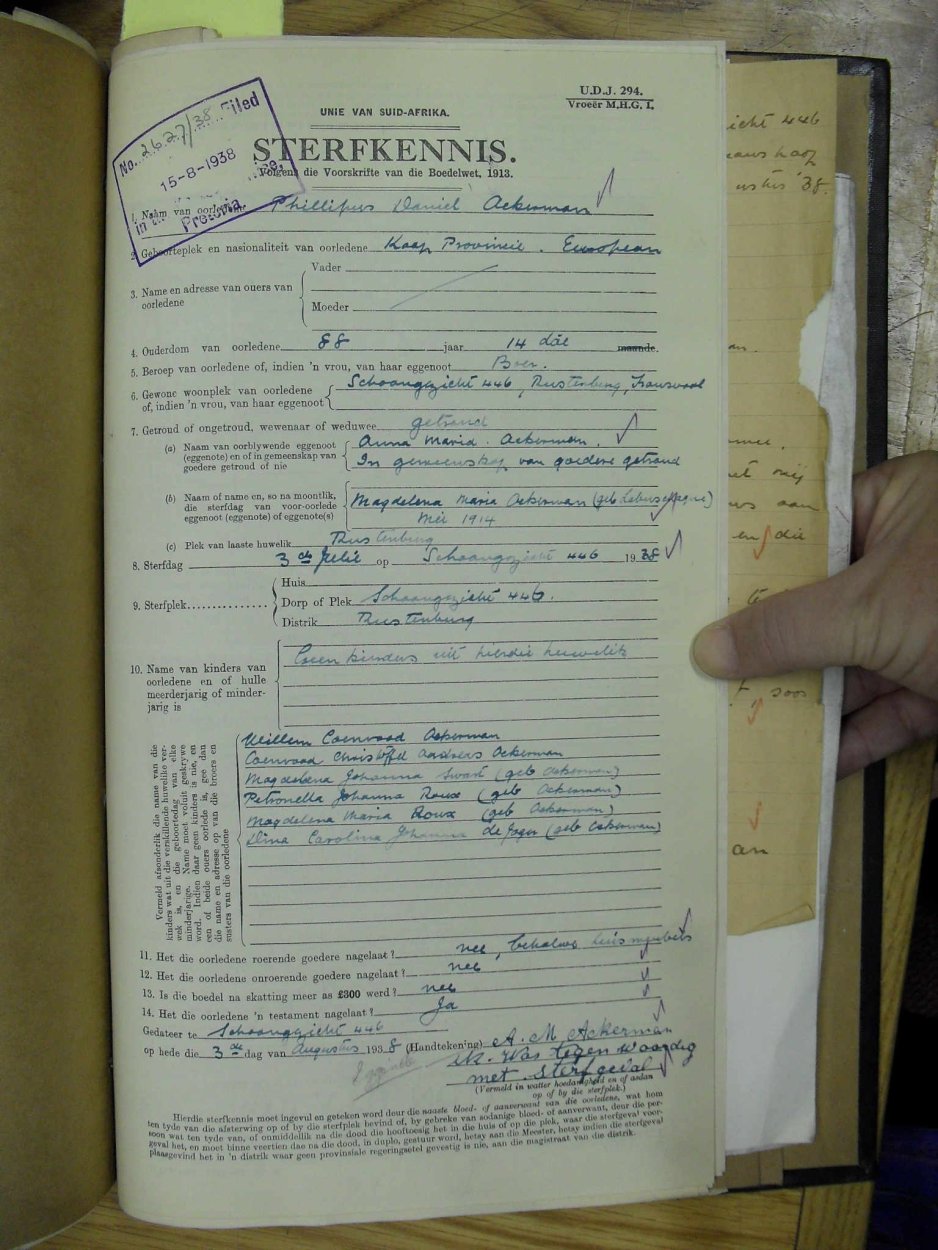 U.D.J. 294.
Vroeër M.H.G. 1.
UNIE VAN SUID-AFRIKA.
No. 2627/38 Filed
15-8-1938
in
Pretoria.
STERFKENNIS.
Volgens die Voorskrifte van die Boedelwet, 1913.
1. Naam van oorledene Phillipus Daniel Ackerman
2. Geboorteplek en nasionaliteit van oorledene Kaap Provincie. European
3. Name en adresse van ouers van oorledene
Vader
Moeder
4. Ouderdom van oorledene 88 jaar 14 däe maande.
5. Beroep van oorledene of, indien 'n vrou, van haar eggenoot Boer.
6. Gewone woonplek van oorledene of, indien 'n vrou, van haar eggenoot
Schoongezicht 446, Rustenburg, Transvaal
7. Getroud of ongetroud, wewenaar of weduwee getroud
(a) Naam van oorblywende eggenoot (eggenote) en of in gemeenskap van goedere getroud of nie
Anna Maria Ackerman.
In gemeenskap van goedere getroud
(b) Naam of name en, so na moontlik, die sterfdag van voor-oorlede eggenoot (eggenote) of eggenote(s)
Magdelena Maria Ackerman (geb
Mei 1914
(c) Plek van laaste huwelik Rustenburg
8. Sterfdag 3de Julie op Schoongezicht 446 1938
9. Sterfplek
Huis
Dorp of Plek Schoongezicht 446.
Distrik Rustenburg
10. Name van kinders van oorledene en of hulle meerderjarig of minderjarig is
Geen kinders uit hierdie huwelik
Vermeld afsonderlik die name van die
kinders wat uit die verskillende huwelike ver-
wek is, en die geboortedag van elke
minderjarige. Name moet voluit geskrywe
word. Indien daar geen kinders is nie, en
een of beide ouers oorlede is, gee dan
die name en adresse op van die broers en
susters van die oorledene
Willem Coenraad Ackerman
Coenraad Christoffel Andreas Ackerman
Magdelena Johanna Swart (geb Ackerman)
Petronella Johanna Roux (geb Ackerman)
Magdelena Maria Roux (geb Ackerman)
Dina Carolina Johanna de Jager (geb Ackerman)
11. Het die oorledene roerende goedere nagelaat? nee, behalwe huismeubels
12. Het die oorledene onroerende goedere nagelaat? nee
13. Is die boedel na skatting meer as £300 werd? nee
14. Het die oorledene 'n testament nagelaat? Ja
Gedateer te Schoongezicht 446
op hede die 3de dag van Augustus 1938 (Handtekening) A. M. Ackerman
ik was tegenwoordig
met sterfgeval
(Vermeld in watter hoedanigheid en of aldan
op of by die sterfplek.)
Hierdie sterfkennis moet ingevul en geteken word deur die naaste bloed- of aanverwant van die oorledene, wat hom
ten tyde van die afsterwing op of by die sterfplek bevind of, by gebreke van sodanige bloed- of aanverwant, deur die per-
soon wat ten tyde van, of onmiddellik na die dood die hooftoesig het in die huis of op die plek, waar die sterfgeval voor-
geval het, en moet binne veertien dae na die dood, in duplo, gestuur word, hetsy aan die Meester, hetsy indien die sterfgeval
plaasgevind het in 'n distrik waar geen provinsiale regeringsetel gevestig is nie, aan die magistraat van die distrik.
446
'38.
aan
en die
soos
an